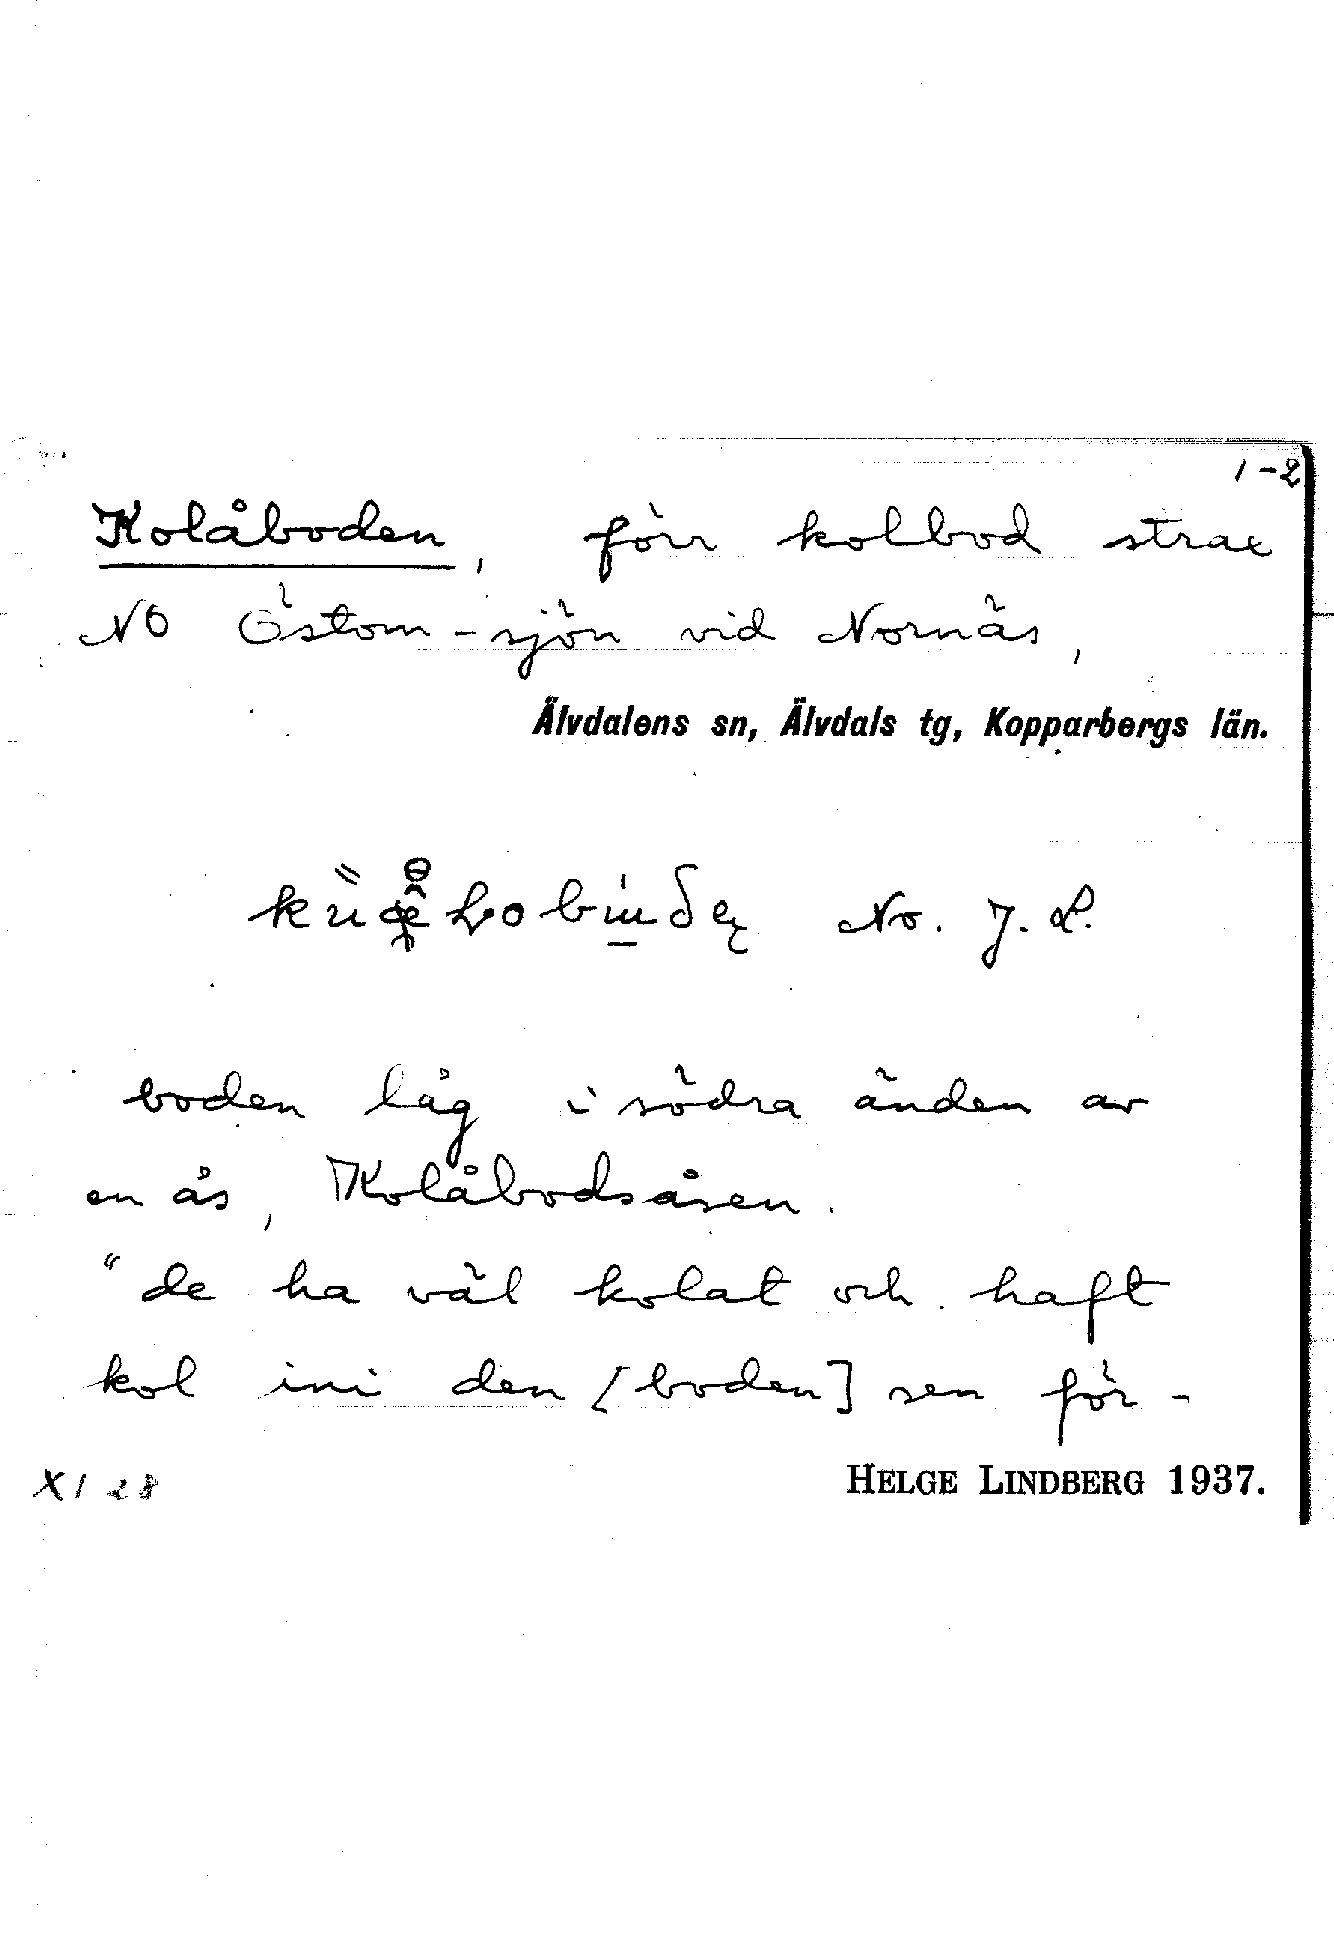 1-2
Kolåboden, förr kolbod strax
NO Östom-sjön vid Nornäs,
Älvdalens sn, Älvdals tg, Kopparbergs län.
No. J. L.
boden låg i södra änden av
en ås, Kolåbodsåsen.
"de ha väl kolat och haft
kol ini den [boden] sen för-
XI 28 HELGE LINDBERG 1937.